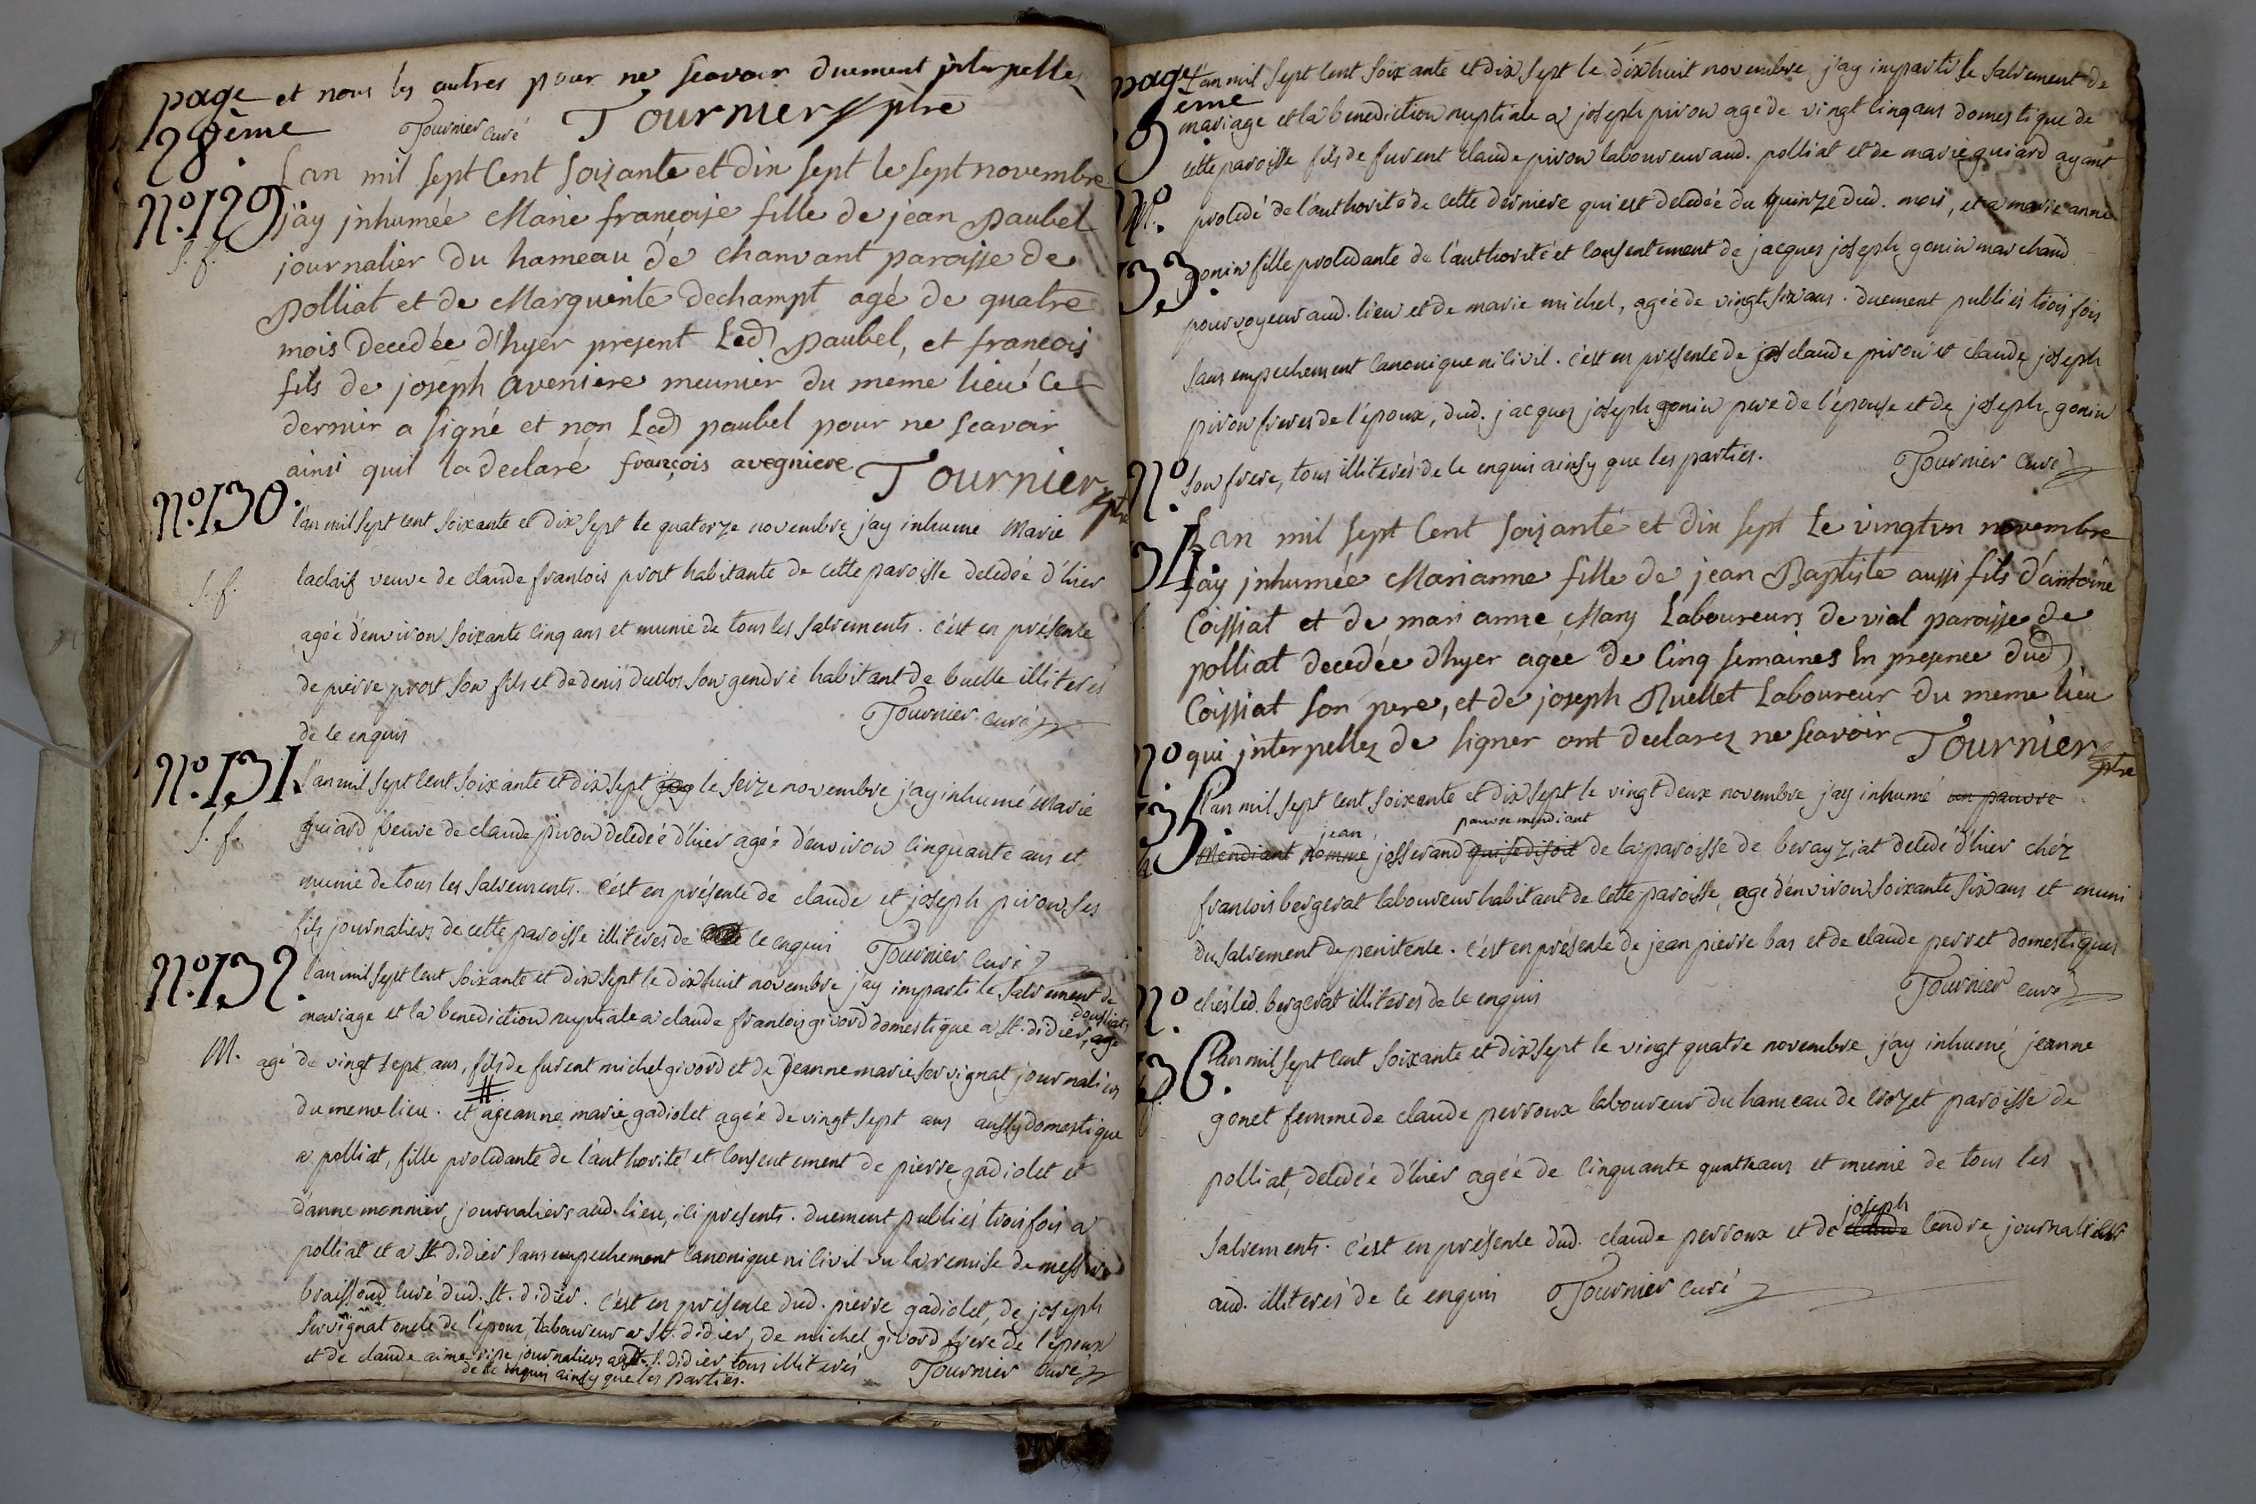 page
28ème
et nous les autres pour ne scavoir duement jnterpellez
Tournier curé Tournier ptre
N.º 129.
S. f.
Lan mil sept Cent soizante et dix sept le sept novembre
j'ay jnhumée Marie françoise fille de jean paubel
journalier du hameau de chanvant paroisse de
polliat et de Marguerite dechampt agé de quatre
mois decedée d'hyer present Led paubel, et francois
fils de joseph aveniere meunier du meme lieu Ce
dernier a signé et non Led paubel pour ne scavoir
ainsi quil la declaré françois avegniere Tournier ptre
N.º 130.
S. f.
l'an mil sept cent soixante et dix sept le quatorze novembre j'ay inhumé Marie
laclaif veuve de claude francois prost habitante de cette paroisse decedée d'hier
agée d'environ soixante cinq ans et munie de tous les sacrements. c'est en présence
de pierre prost son fils et de denis duclos son gendre habitant de buelle illiterés
de ce enquis Tournier curé
N.º 131.
S. f.
l'an mil sept cent soixante et dix sept le seize novembre j'ay inhumé Marie
guiard veuve de claude pirou decedée d'hier agée d'environ cinquante ans et
munie de tous les sacrements. c'est en présence de claude et joseph pirou ses
fils journaliers de cette paroisse illiterés de ce enquis Tournier curé
N.º 132.
M.
l'an mil sept cent soixante et dix sept le dix huit novembre j'ay imparti le sacrement de
mariage et la benediction nuptiale a claude francois givord domestique a st. didier,
agé de vingt sept ans, fils de furent michel givord et de jeanne marie servignat journaliers
du meme lieu. et a jeanne marie gadiolet agée de vingt sept ans aussy domestique
a polliat, fille procedante de l'authorité et consentement de pierre gadiolet et
d'anne monnier journaliers aud. lieu, ici presents. duement publiés trois fois a
polliat et a st. didier sans empechement canonique ni civil vu la remise de messire
braissoud curé dud. st. didier. c'est en présence dud. pierre gadiolet, de joseph
servignat oncle de l'époux, laboureur a st. didier, de michel givord frere de l'époux
et de claude aimé journaliers a st. didier tous illiterés Tournier curé
de ce enquis ainsy que les parties.
page
eme
N.º
133.
l'an mil sept cent soixante et dix sept le dixhuit novembre j'ay imparti le sacrement de
mariage et la benediction nuptiale a joseph pirou agé de vingt cinq ans domestique de
cette paroisse fils de furent claude pirou laboureur aud. polliat et de marie guiard ayant
procedé de l'authorité de cette derniere qui est decedée du quinze dud. mois, et a marie anne
gonin fille procedante de l'authorité et consentement de jacques joseph gonin marchand
pourvoyeur aud. lieu et de marie michel, agée de vingt six ans. duement publiés trois fois
sans empechement canonique ni civil. c'est en présence de claude pirou et claude joseph
pirou freres de l'époux, dud. jacques joseph gonin pere de l'épouse et de joseph gonin
son frere, tous illiterés de ce enquis ainsy que les parties. Tournier curé
N.º
134.
Lan mil sept Cent soizante et dix sept Le vingtun novembre
j'ay jnhumée Marianne fille de jean Baptiste aussi fils d'antoine
Coissiat et de mari anne Mary Laboureurs de vial paroisse de
polliat decedée dhyer agée de Cinq semaines En presence dud
Coissiat son pere, et de joseph Nuellet Laboureur du meme lieu
qui jnterpellez de signer ont declarez ne scavoir Tournier ptre
N.º
135.
l'an mil sept cent soixante et dix sept le vingt deux novembre j'ay inhumé un pauvre
jean pauvre mendiant
mendiant nommé josserand qui se disoit de la paroisse de berayziat decedé d'hier chéz
francois bergerat laboureur habitant de cette paroisse, agé d'environ soixante six ans et muni
du sacrement de penitence. c'est en présence de jean pierre bas et de claude perret domestiques
chés led. bergerat illiterés de ce enquis Tournier curé
N.º
136.
l'an mil sept cent soixante et dix sept le vingt quatre novembre j'ay inhumé jeanne
gonet femme de claude perroux laboureur du hameau de crozet paroisse de
polliat, decedée d'hier agée de cinquante quatre ans et munie de tous les
joseph
sacrements. c'est en présence dud. claude perroux et de claude cendre journalier
aud. illiterés de ce enquis Tournier curé